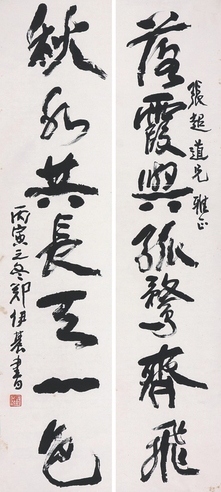 張超道兄雅正
落霞與孤鶩齊飛
秋水共長天一色
丙寅之冬鄭伊農書